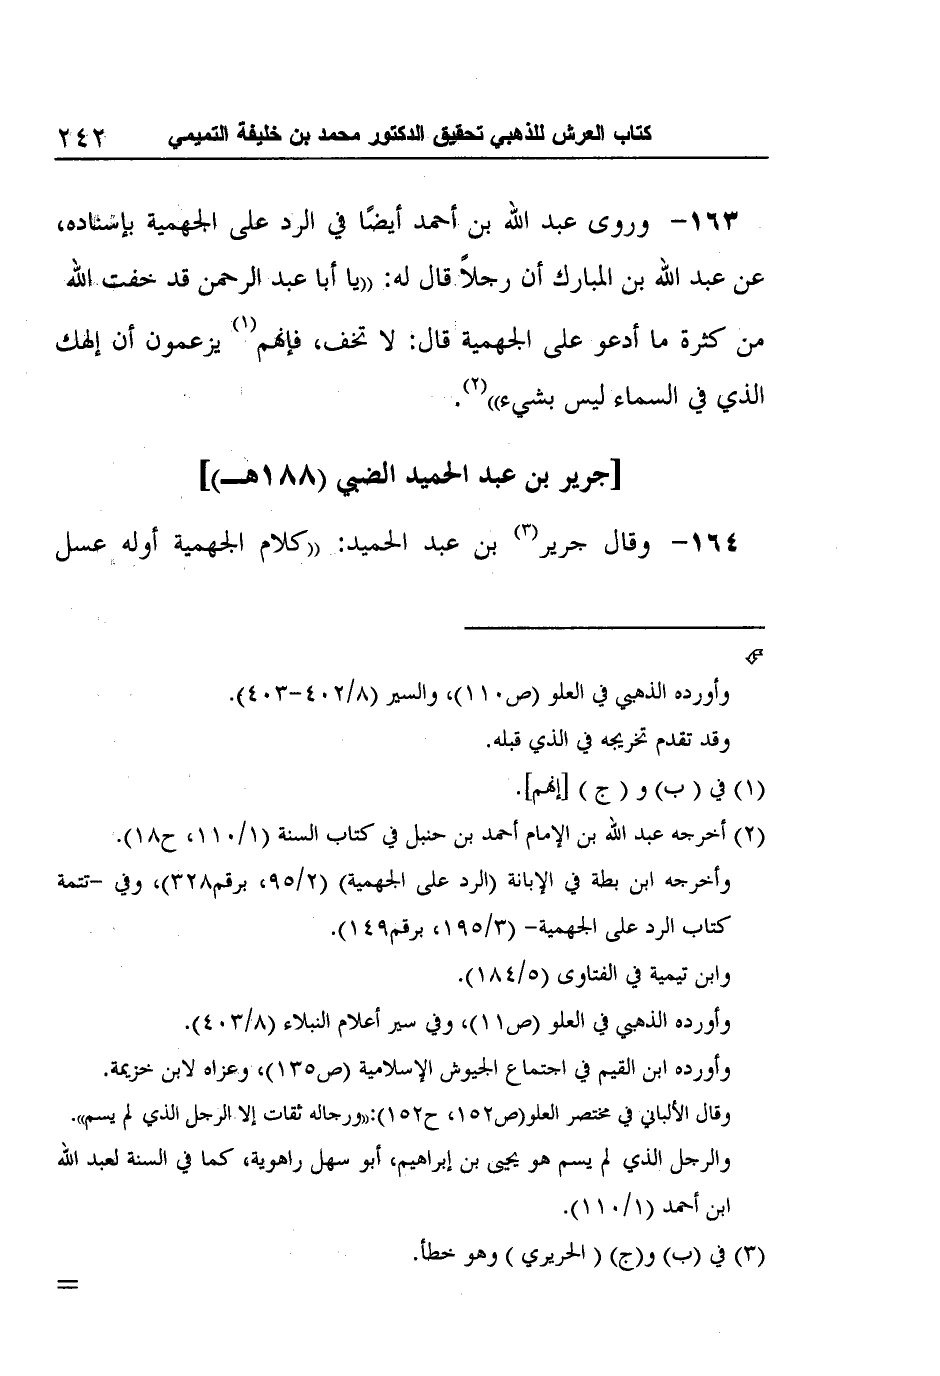 كتاب العرش للذهبي تحقيق الدكتور محمد بن خليفة التميمي ٢٤٢
١٦٣- وروى عبد الله بن أحمد أيضًا في الرد على الجهمية بإسناده،
عن عبد الله بن المبارك أن رجلاً قال له: ((يا أبا عبد الرحمن قد خفت الله
من كثرة ما أدعو على الجهمية قال: لا تخف، فإنهم(١) يزعمون أن إلهك
الذي في السماء ليس بشيء))(٢).
[جرير بن عبد الحميد الضبي (١٨٨هـ)]
١٦٤- وقال جرير(٣) بن عبد الحميد: ((كلام الجهمية أوله عسل
وأورده الذهبي في العلو (ص١١٠)، والسير (٤٠٢/٨-٤٠٣).
وقد تقدم تخريجه في الذي قبله.
(١) في (ب) و (ج) [إنهم].
(٢) أخرجه عبد الله بن الإمام أحمد بن حنبل في كتاب السنة (١١٠/١، ح١٨).
وأخرجه ابن بطة في الإبانة (الرد على الجهمية) (٩٥/٢، برقم٣٢٨)، وفي -تتمة
كتاب الرد على الجهمية- (١٩٥/٣، برقم١٤٩).
وابن تيمية في الفتاوى (١٨٤/٥).
وأورده الذهبي في العلو (ص١١)، وفي سير أعلام النبلاء (٤٠٣/٨).
وأورده ابن القيم في اجتماع الجيوش الإسلامية (ص١٣٥)، وعزاه لابن خزيمة.
وقال الألباني في مختصر العلو(ص١٥٢، ح١٥٢):((ورجاله ثقات إلا الرجل الذي لم يسم)).
والرجل الذي لم يسم هو يحيى بن إبراهيم، أبو سهل راهوية، كما في السنة لعبد الله
ابن أحمد (١١٠/١).
(٣) في (ب) و(ج) (الحريري) وهو خطأ.
=